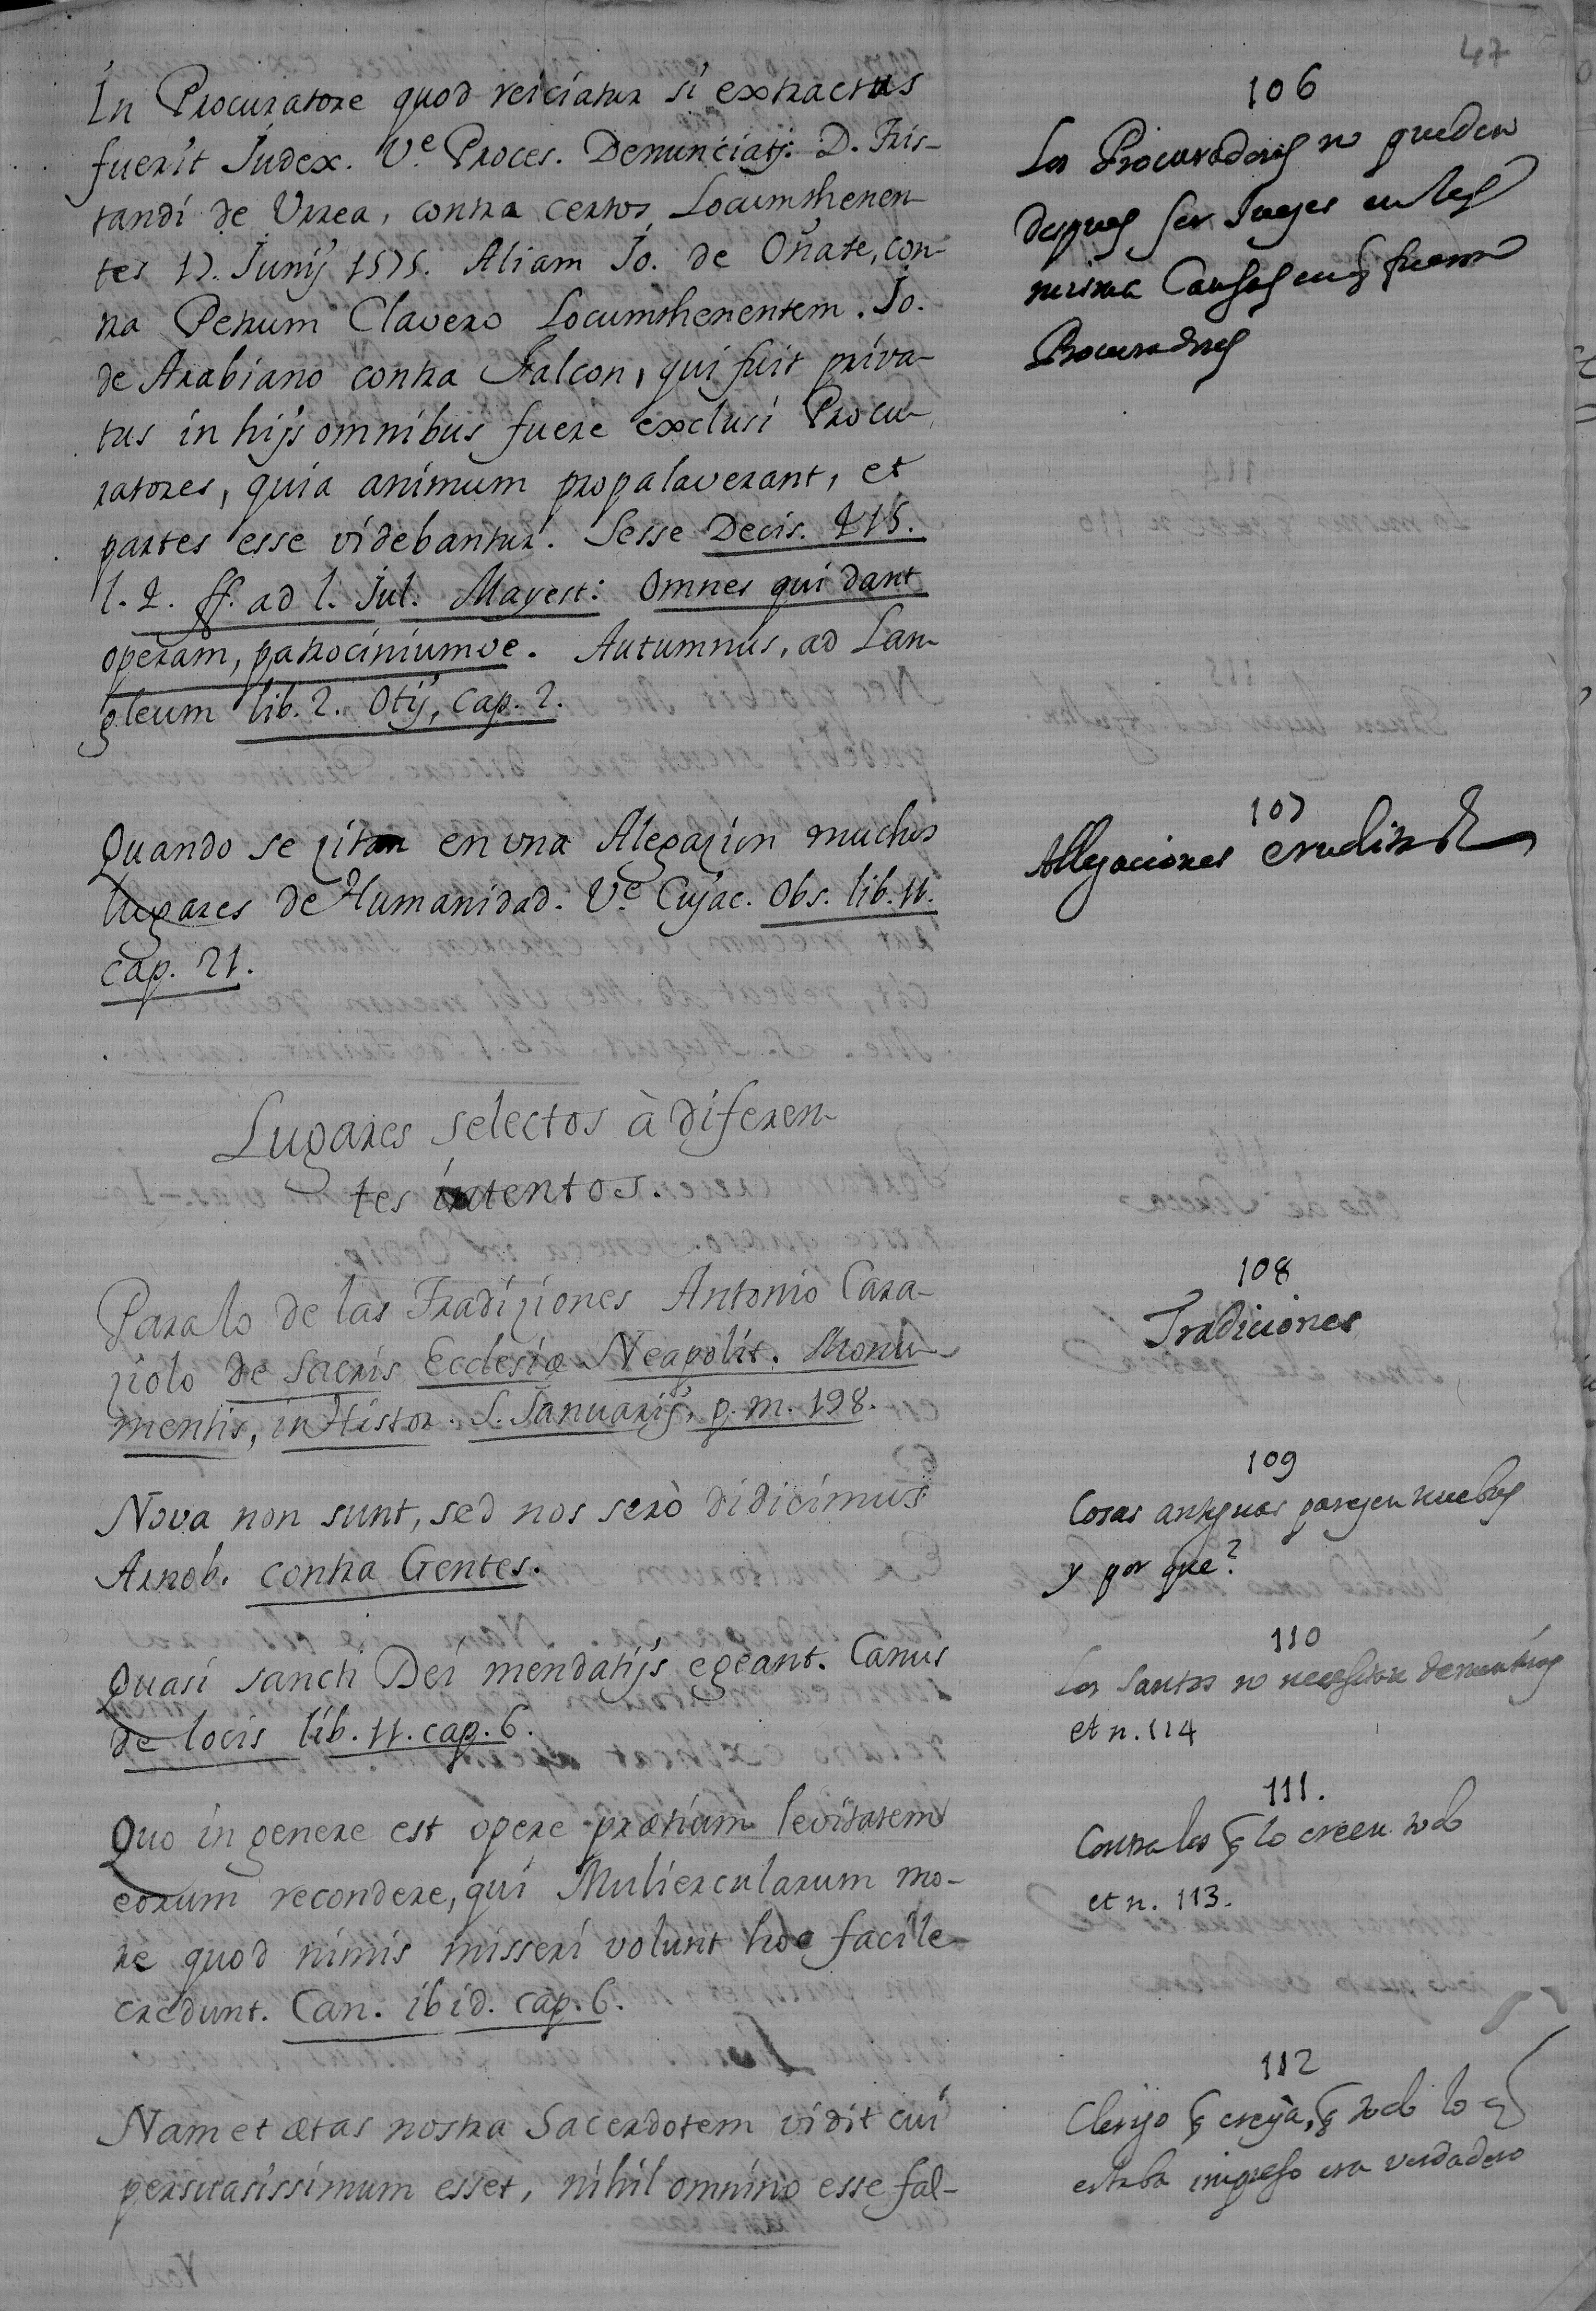 47
In Procuratore quod reiciatur si extractus
fuerit Judex. Ve. Proces. Denunciatj. D. Tris-
tandi de Urrea, contra certos Locumthenen-
tes 17. Junij 1575. Aliam Jo. de Oñate, con-
tra Petrum Clavero Locumthenentem. Jo.
de Arabiano contra Falcon, qui fuit priva-
tus in hijs omnibus fuere exclusi Procu-
ratores, quia animum propalaverant, et
partes esse videbantur. Sesse Decis. 215.
l. 2. ff. ad l. Jul. Mayest: Omnes qui dant
operam, patrociniumve. Autumnus, ad Lan-
gleum lib. 2. Otij, cap. 2.
106
Los Procuradores no pueden
despues ser Juezes en las
misma Causas en q fueron
Procuradores
Quando se zitan en una Alegazion muchos
lugares de Humanidad. Ve. Cujac. Obs. lib. 11.
cap. 21.
107
Allegaciones eruditas
Lugares selectos à diferen-
tes intentos.
Para lo de las Tradiziones Antonio Cara-
ziolo de Sacris Ecclesiæ Neapolit. Monu-
mentis, in Histor. S. Januarij, p. m. 198.
108
Tradiciones
Nova non sunt, sed nos serò didicimus
Arnob. contra Gentes.
109
Cosas antiguas parezen nuebas
y por que?
Quasi sancti Dei mendatijs egeant. Canus
de locis lib. 11. cap. 6.
110
Los Santos no necessitan de mentiras
et n. 114
Quo in genere est opere prætium levitatem
eorum recondere, qui Muliercularum mo-
re quod nimis misseri volunt hoc facile
credunt. Can. ibid. cap. 6.
111.
Contra los q lo creen todo
et n. 113.
Nam et ætas nostra Sacerdotem vidit cui
persuasissimum esset, nihil omnino esse fal-
112
Clerigo q creya, q todo lo q
estaba impresso era verdadero